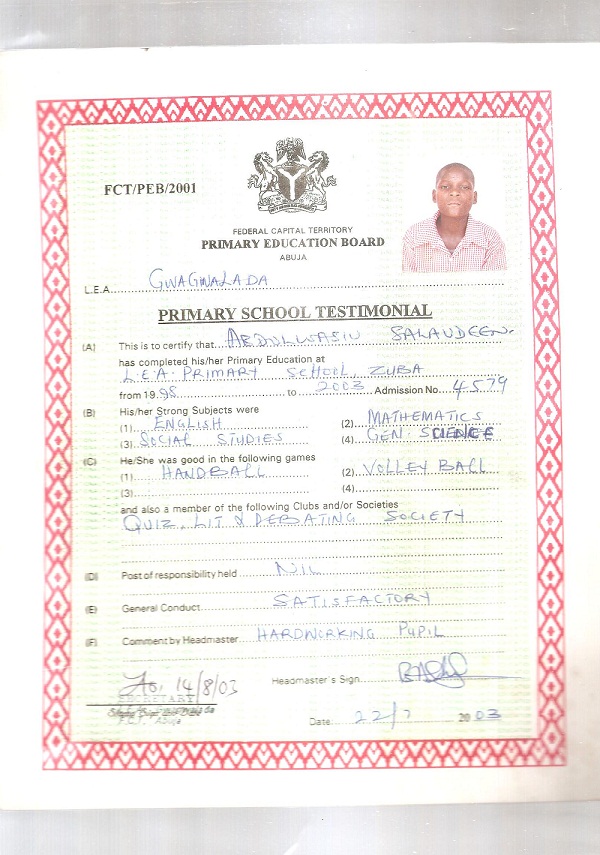 FCT/PEB/2001
FEDERAL CAPITAL TERRITORY
PRIMARY EDUCATION BOARD
ABUJA
L.E.A. GWAGWALADA
PRIMARY SCHOOL TESTIMONIAL
(A) This is to certify that ABDULWASIU SALAUDEEN.
has completed his/her Primary Education at
L.E.A. PRIMARY SCHOOL, ZUBA
from 1998 to 2003 Admission No. 4579
(B) His/her Strong Subjects were
(1) ENGLISH (2) MATHEMATICS
(3) SOCIAL STUDIES (4) GEN. SCIENCE
(C) He/She was good in the following games
(1) HANDBALL (2) VOLLEY BALL
(3) (4)
and also a member of the following Clubs and/or Societies
QUIZ, LIT & DEBATING SOCIETY
(D) Post of responsibility held NIL
(E) General Conduct SATISFACTORY
(F) Comment by Headmaster HARDWORKING PUPIL
14/8/03 Headmaster's Sign
SECRETARY
F.C.T. Abuja
Date 22/7 2003